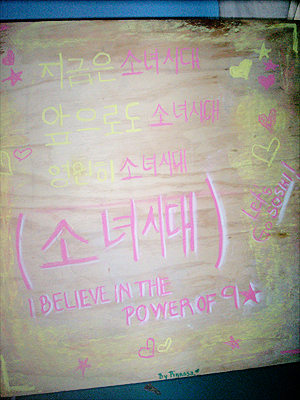 지금은 소녀시대
앞으로도 소녀시대
영원히 소녀시대
(소녀시대)
I BELIEVE IN THE
POWER OF 9★
Let's
Go SoShi!